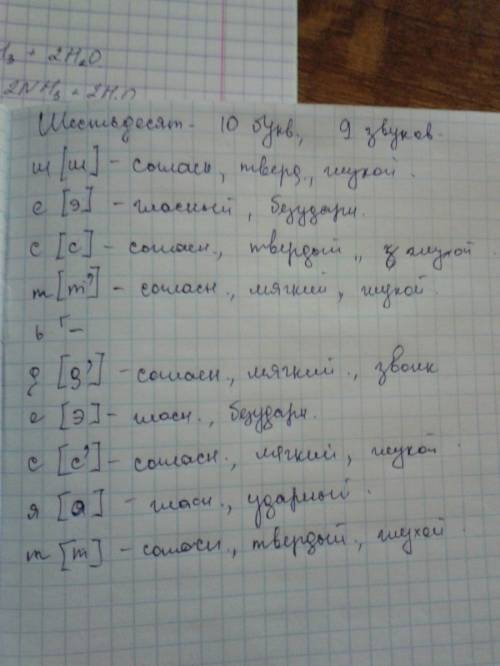 H₃ + 2H₂O
2NH₃ + 2H₂O
Шестьдесят - 10 букв, 9 звуков.
ш [ш] - согласн, тверд., глухой.
е [э] - гласный, безударн.
с [с] - согласн., твердый, глухой.
т [т'] - согласн., мягкий, глухой.
ь [-
д [д'] - согласн., мягкий., звонк
е [э] - гласн., безударн.
с [с'] - согласн., мягкий, глухой.
я [а] - гласн., ударный.
т [т] - согласн., твердый, глухой.